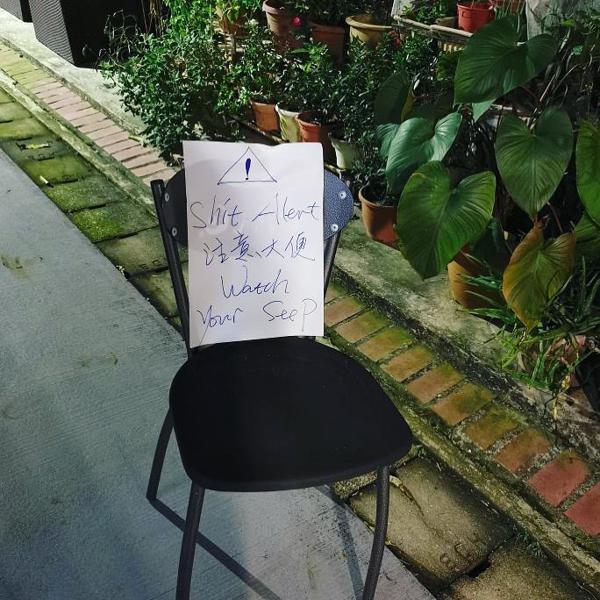 !
Shit Alert
注意大便
Watch
Your Seep